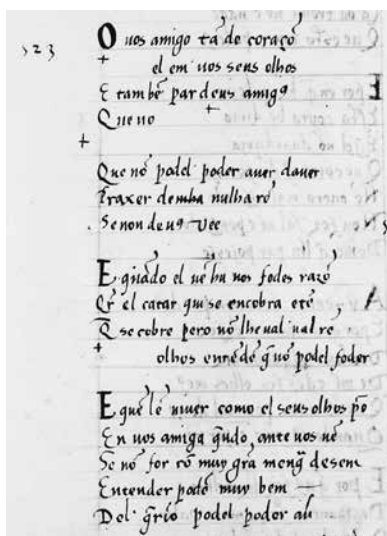 323
O uos amigo tã de coraçõ
el em uos seus olhos
E tambẽ par deus amigꝯ
Que no
Que nõ podel poder auer dauer
Praxer de nulha rẽ
Senon deuꝯ uee
E quãdo el uẽ hu uos sodes razõ
Qr̃ el catar qui se encobra etẽ
Q̃ se cobre pero nõ lhe ual ual re
olhos enrẽde q̃ nõ podel poder
E que lẽ uiuer como el seus olhos põ
En uos amiga q̃ndo ante uos uẽ
Se nõ for cõ muy grã mengꝯ desem
Entender podẽ muy bem
Del q̃rio podel poder au